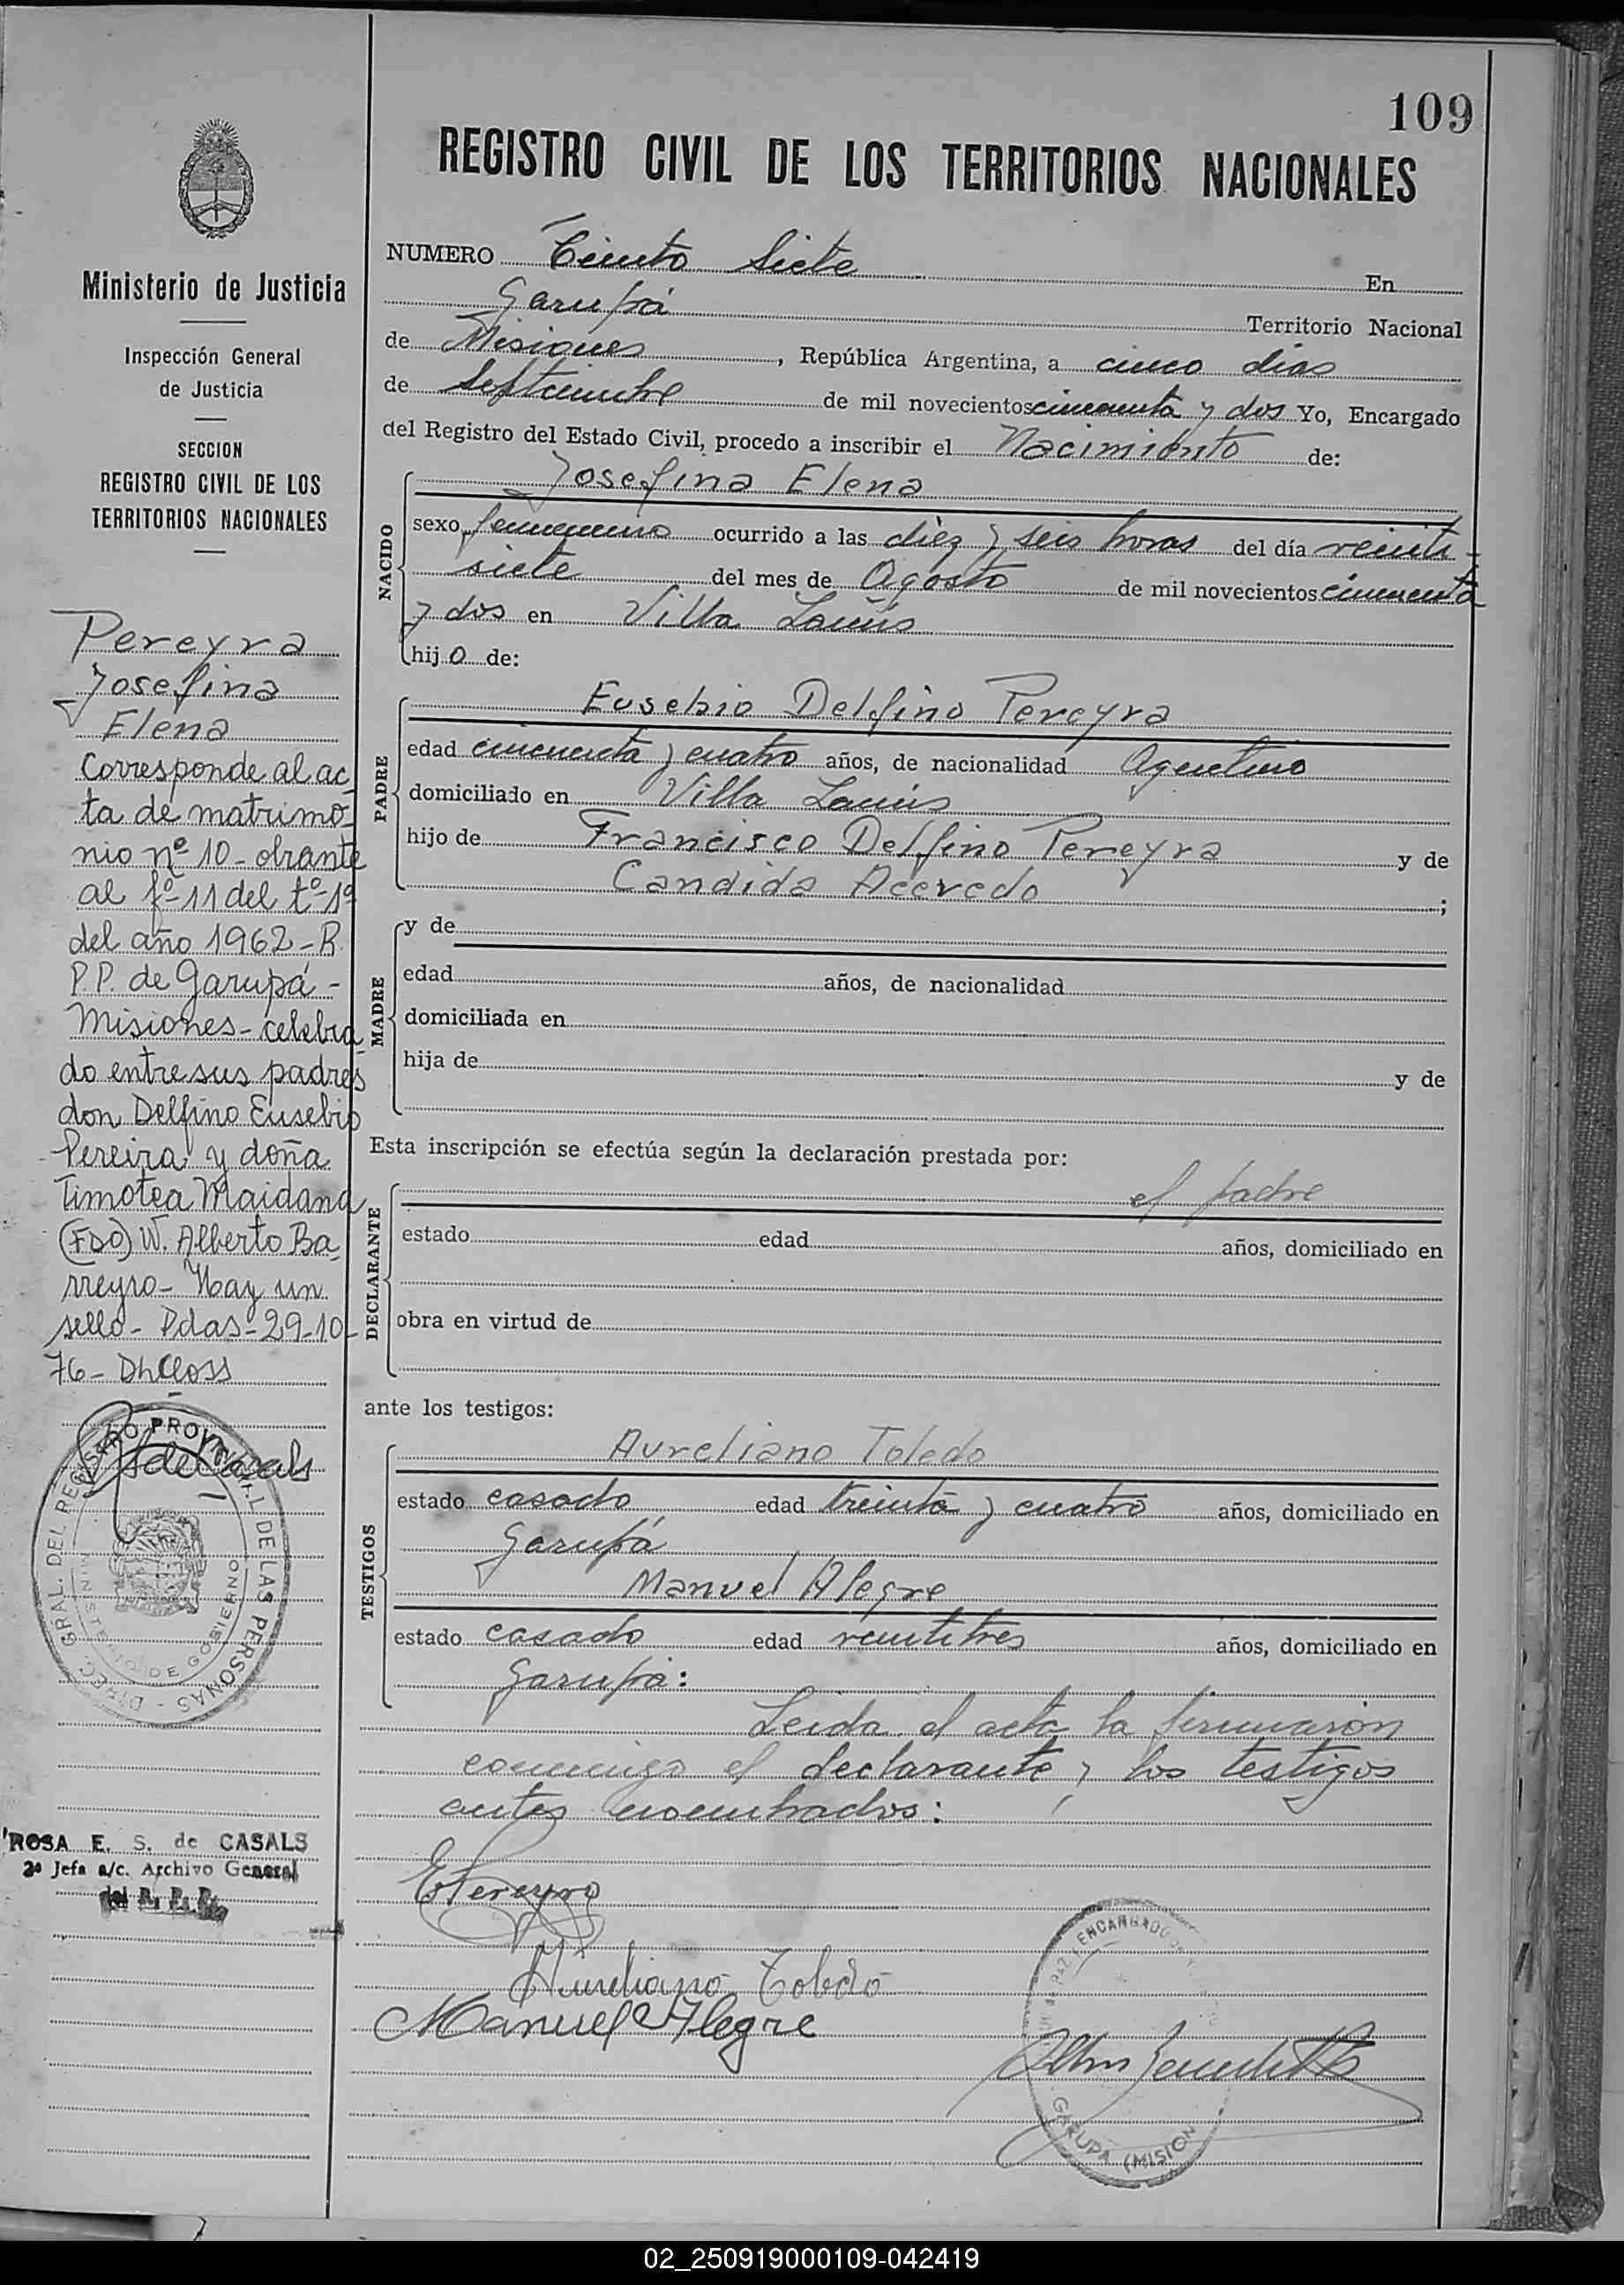 109
REGISTRO CIVIL DE LOS TERRITORIOS NACIONALES
Ministerio de Justicia
Inspección General
de Justicia
SECCION
REGISTRO CIVIL DE LOS
TERRITORIOS NACIONALES
Pereyra
Josefina
Elena
Corresponde al ac
ta de matrimo-
nio nº 10 - obrante
al fº 11 del tº 1º
del año 1962 - R.
P.P. de Garupá -
Misiones - celebra
do entre sus padres
don Delfino Eusebio
Pereira y doña
Timotea Maidana
(FDO) W. Alberto Ba
rreyro - Hay un
sello - Pdas - 29-10-
76 - DhCloss
DIREC. GRAL. DEL REGISTRO PROVINCIAL DE LAS PERSONAS
MINISTERIO DE GOBIERNO
ROSA E. S. de CASALS
2ª Jefa a/c. Archivo General
del R. P. P.
NUMERO Ciento Siete En
Garupá Territorio Nacional
de Misiones, República Argentina, a cinco dias
de Septiembre de mil novecientos cincuenta y dos Yo, Encargado
del Registro del Estado Civil, procedo a inscribir el Nacimiento de:
NACIDO
Josefina Elena
sexo femenino ocurrido a las diez y seis horas del día veinti-
siete del mes de Agosto de mil novecientos cincuenta
y dos en Villa Lanús
hijo de:
PADRE
Eusebio Delfino Pereyra
edad cincuenta y cuatro años, de nacionalidad Argentino
domiciliado en Villa Lanús
hijo de Francisco Delfino Pereyra y de
Candida Acevedo ;
MADRE
y de
edad años, de nacionalidad
domiciliada en
hija de y de
Esta inscripción se efectúa según la declaración prestada por:
DECLARANTE
el padre
estado edad años, domiciliado en
obra en virtud de
ante los testigos:
TESTIGOS
Aureliano Toledo
estado casado edad treinta y cuatro años, domiciliado en
Garupá
Manuel Alegre
estado casado edad veintitres años, domiciliado en
Garupá:
Leida el acta la firmaron
conmigo el declarante y los testigos
antes nombrados:
EPereyra
Aureliano Toledo
Manuel Alegre
PAZ Y ENCARGADO
GARUPA (MISION
02_250919000109-042419